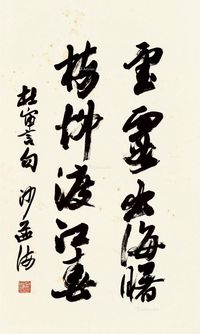 雲霞出海曙
梅柳渡江春
杜審言句 沙孟海